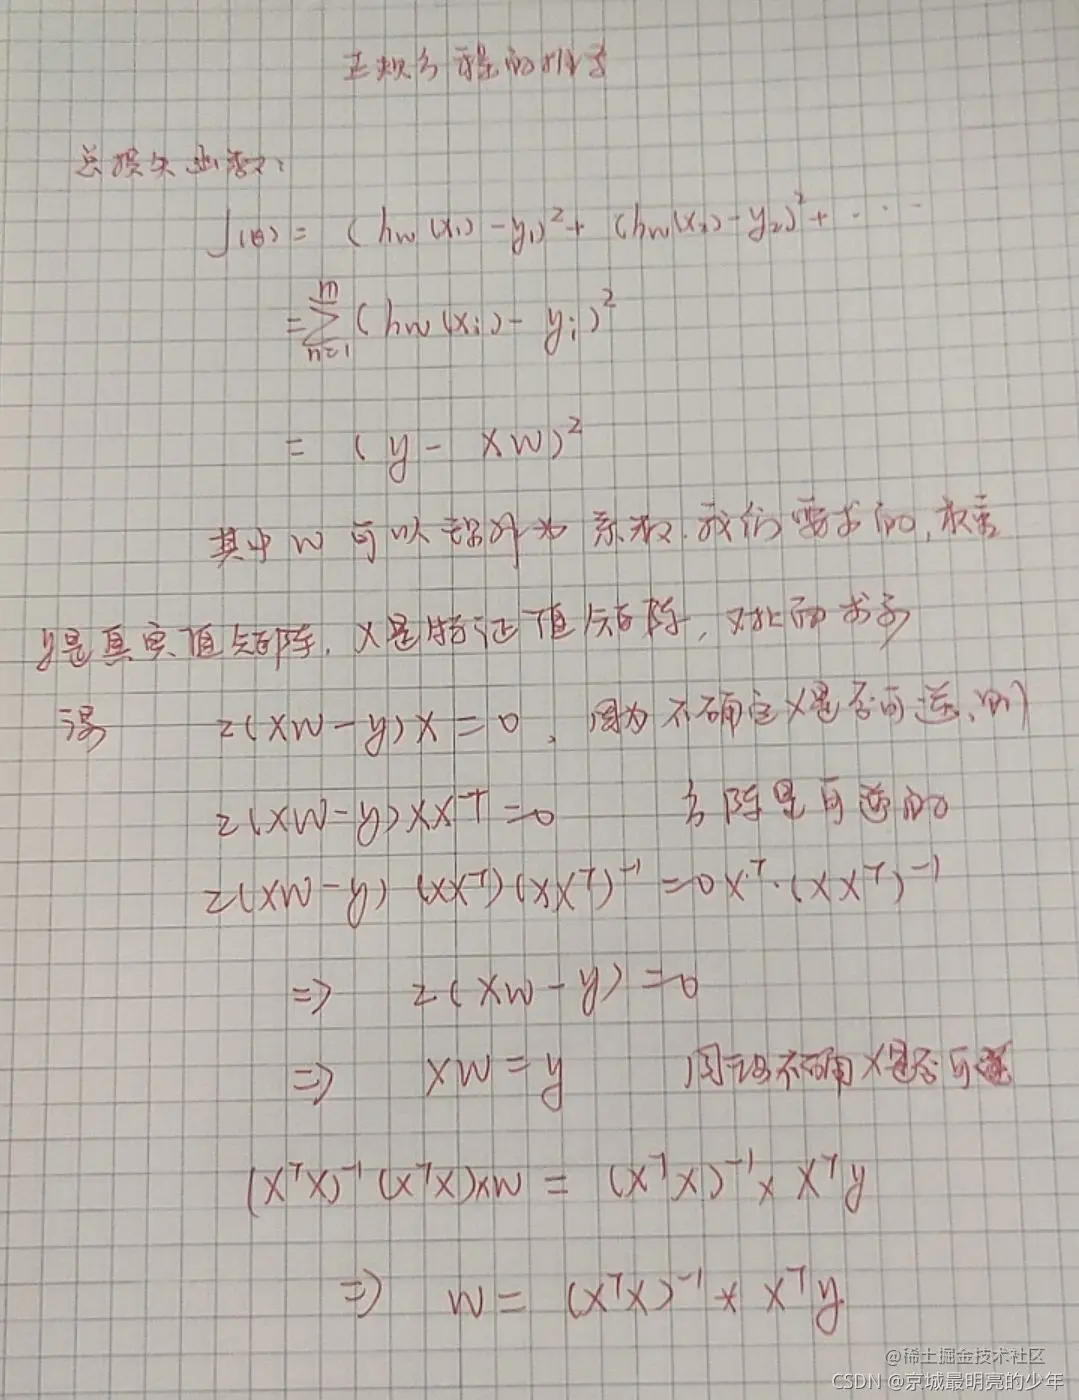 正规方程的推导
总损失函数:
J(θ) = (hw(x₁) - y₁)² + (hw(x₂) - y₂)² + ····
= Σᵐₙ₌₁ (hw(xᵢ) - yᵢ)²
= (y - XW)²
其中W可以 为系数.我们要求的,权重
y是真实值矩阵,X是特征值矩阵,对 求导
得 2(XW-y)X=0, 因为不确定X是否可逆,则
2(XW-y)XXᵀ=0 方阵是可逆的
2(XW-y)(XXᵀ)(XXᵀ)⁻¹=0Xᵀ·(XXᵀ)⁻¹
=> 2(XW-y)=0
=> XW=y 因为不确定X是否可逆
(XᵀX)⁻¹(XᵀX)XW = (XᵀX)⁻¹*Xᵀy
=> W = (XᵀX)⁻¹*Xᵀy
@稀土掘金技术社区
CSDN @京城最明亮的少年